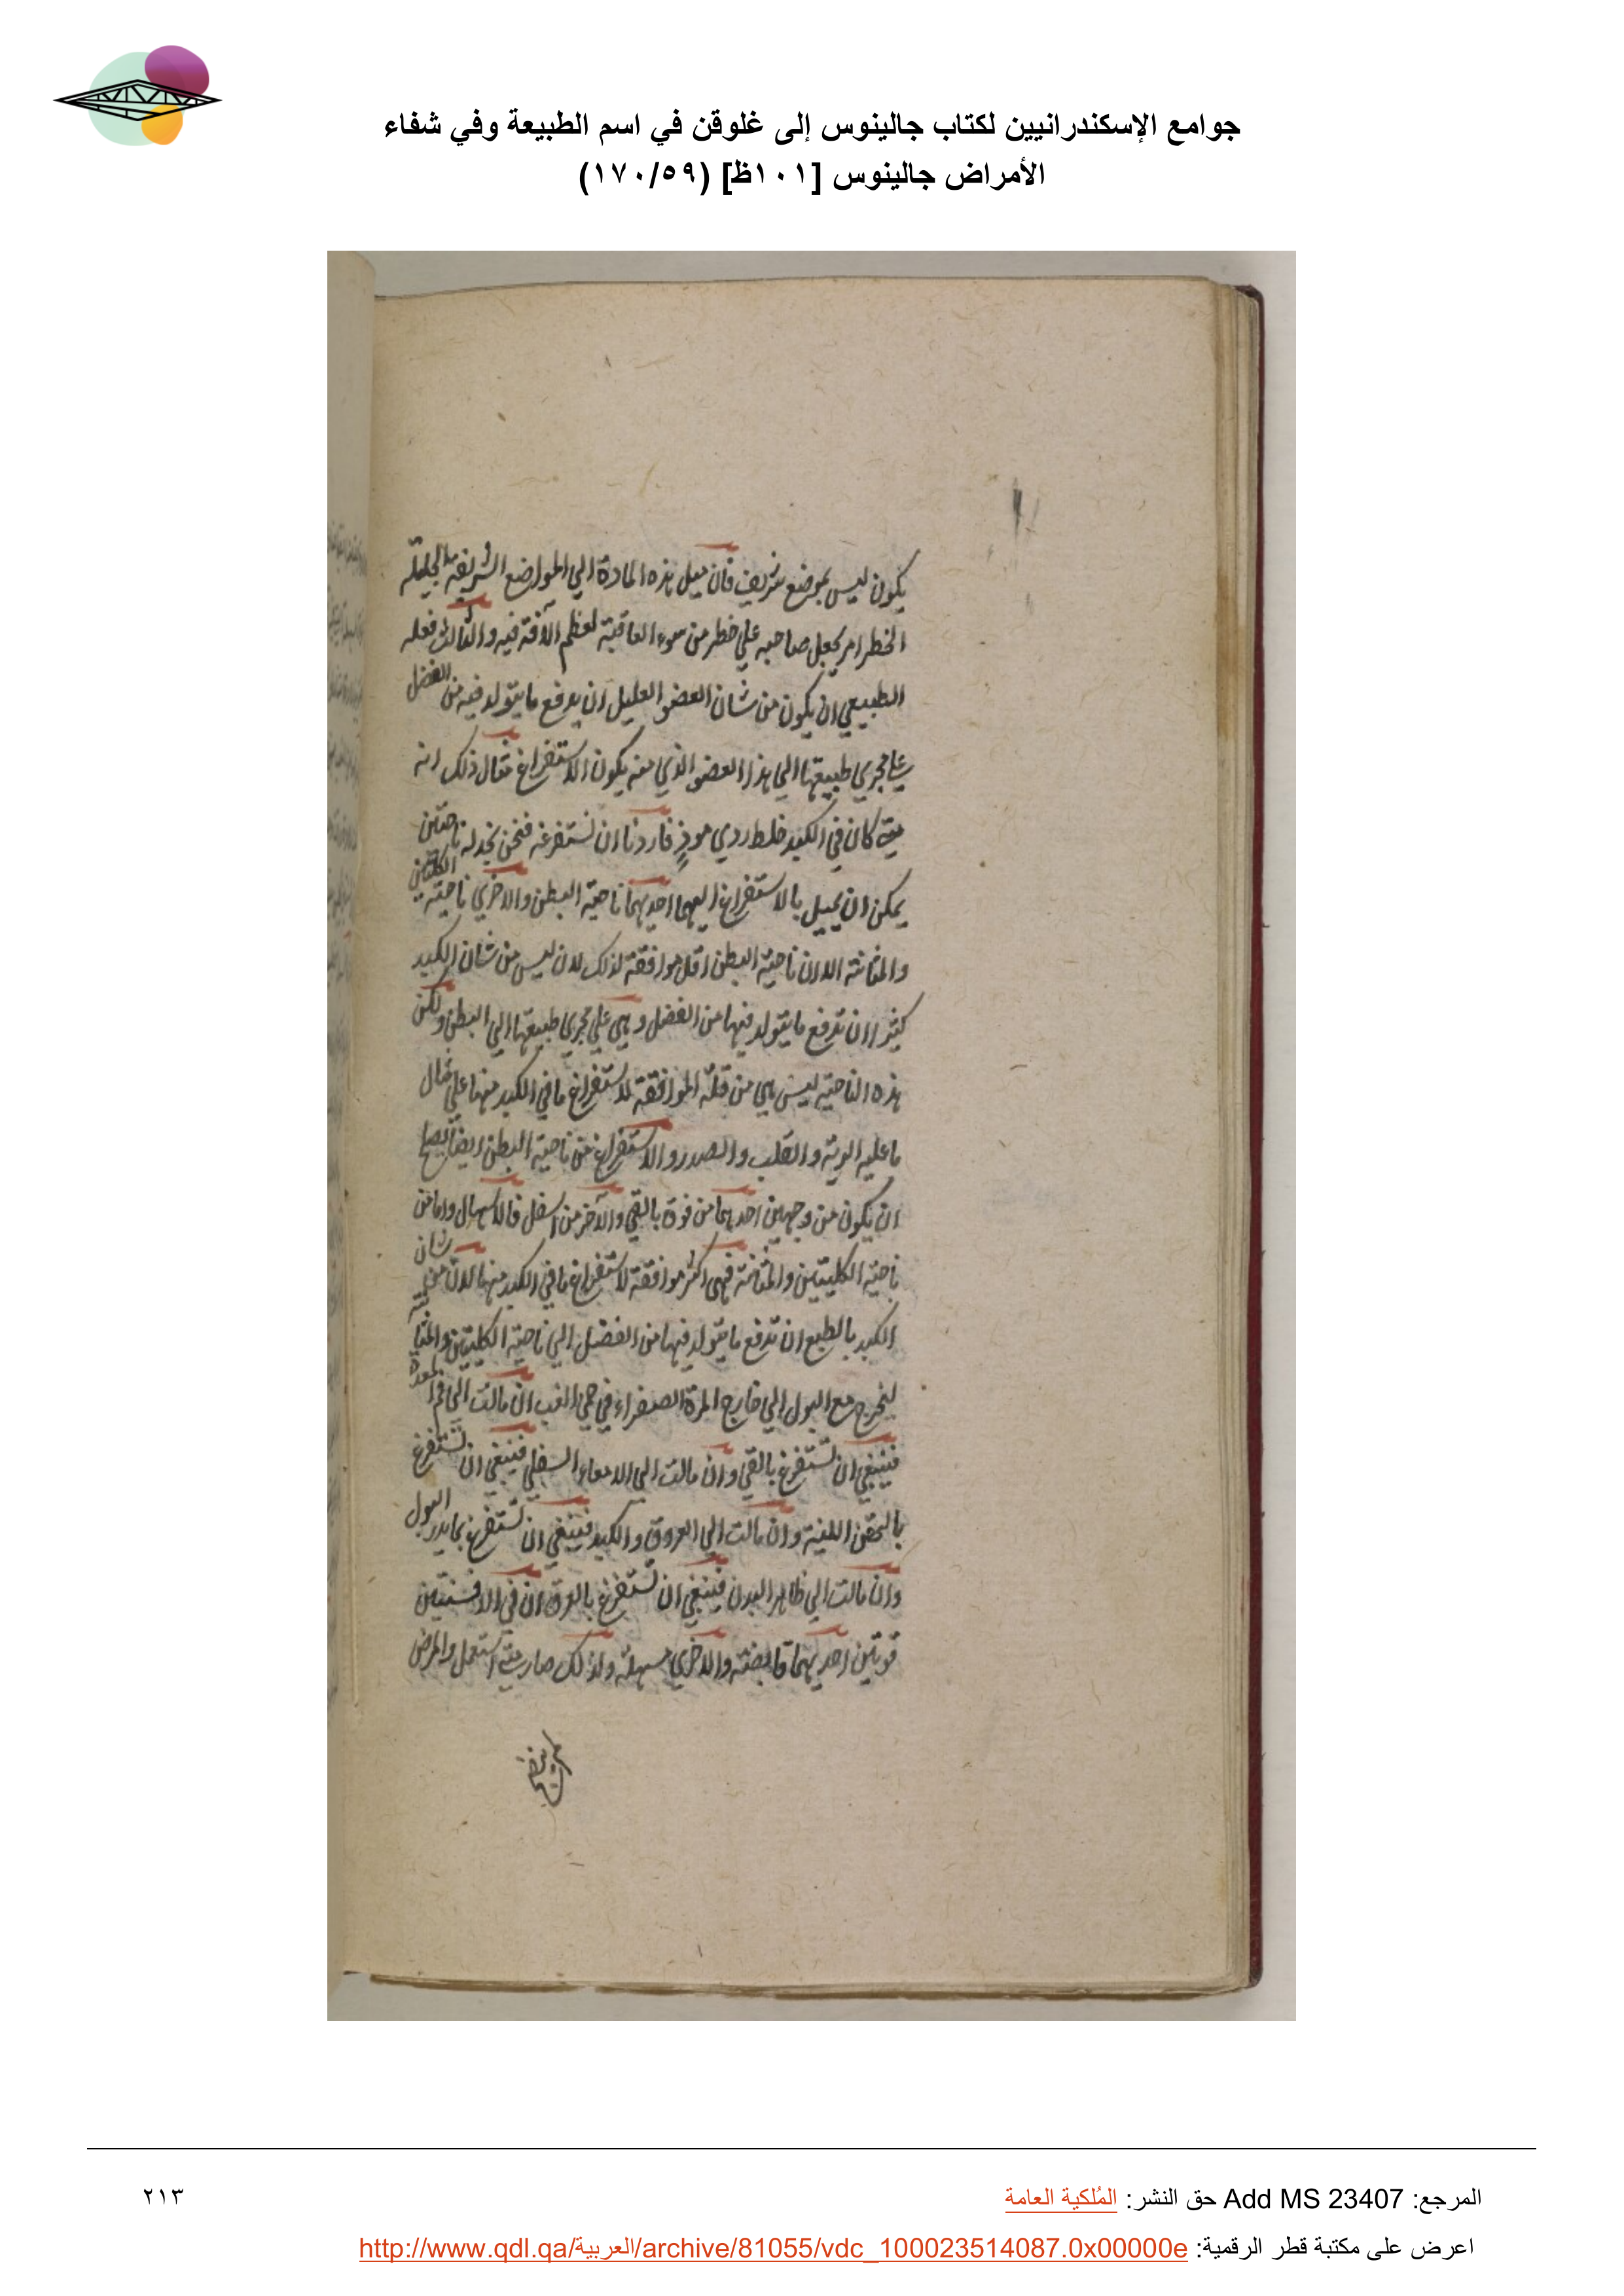 جوامع الإسكندرانيين لكتاب جالينوس إلى غلوقن في اسم الطبيعة وفي شفاء
الأمراض جالينوس [١٠١ظ] (١٧٠/٥٩)
يكون ليس بموضع شريف فان ميل هذه المادة الي المواضع الشريفة الجليلة
الخطر امر يجعل صاحبه علي خطر من سوء العاقبة لعظم الآفة فيه والثالث فعله
الطبيعي ان يكون من شان العضو العليل ان يدفع ما يتولد فيه من الفضل
علي مجري طبيعتها الي هذا العضو الذي منه يكون الاستفراغ مثال ذلك انه
متي كان في الكبد خلط ردي موذٍ فاردنا ان نستفرغه فنحن نجد له ناحيتين
يمكن ان يميل بالاستفراغ اليهما احديهما ناحية البطن والاخري ناحية الكليتين
والمثانة الا ان ناحية البطن اقل موافقة لذلك لان ليس من شان الكبد
كثيرا ان تدفع ما يتولد فيها من الفضل وهي علي مجري طبيعتها الي البطن ولكن
هذه الناحية ليس هي من قلة الموافقة لاستفراغ ما في الكبد منها علي مثال
ما عليه الرية والقلب والصدر والاستفراغ من ناحية البطن ايضا يصلح
ان يكون من وجهين احديهما من فوق بالقي والآخر من اسفل فالاسهال واما من
ناحية الكليتين والمثانة فهي اكثر موافقة لاستفراغ ما في الكبد منها لان من شان
الكبد بالطبع ان تدفع ما يتولد فيها من الفضل الي ناحية الكليتين والمثانة
ليخرج مع البول الي خارج المرة الصفراء في حمي الغب ان مالت الي فم المعدة
فينبغي ان تستفرغ بالقي وان مالت الي الامعاء السفلي فينبغي ان تستفرغ
بالحقن اللينة وان مالت الي العروق والكبد فينبغي ان تستفرغ بما يدر البول
وان مالت الي ظاهر البدن فينبغي ان تستفرغ بالعرق ان في الافسنتين
قوتين احديهما قابضة والاخري مسهلة ولذلك صار متي استعمل والمرض
المرجع: Add MS 23407 حق النشر: المُلكية العامة
٢١٣
اعرض على مكتبة قطر الرقمية: http://www.qdl.qa/العربية/archive/81055/vdc_100023514087.0x00000e